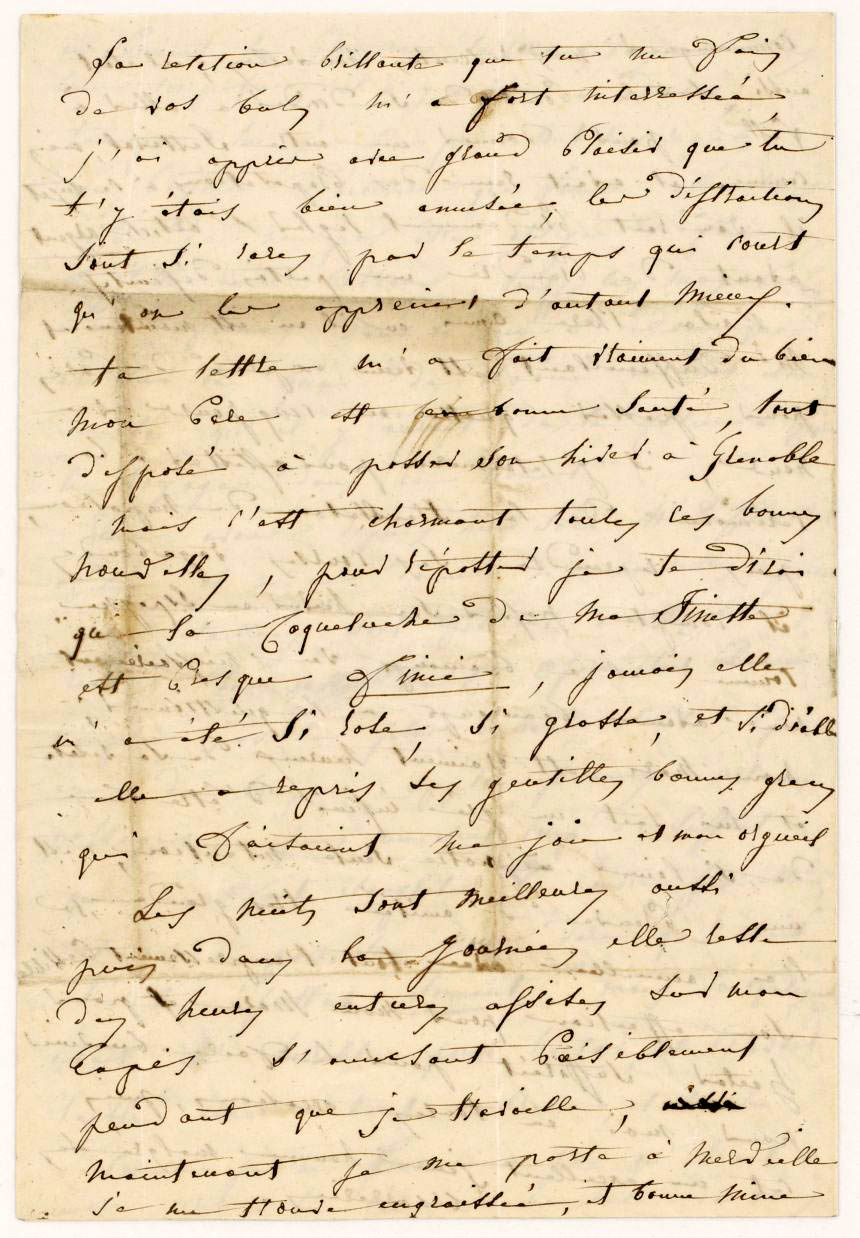 La relation brillante que tu me fais
de vos bals m'a fort interressée,
j'ai appris avec grand Plaisir que tu
t'y étais bien amusée, les distractions
sont si rares par le temps qui court
qu'on les apprécient d'autant mieux.
ta lettre m'a fait vraiment du bien
mon Père est bonne Santé, tout
disposé à passer son hiver à Grenoble
mais c'est charmant toutes ces bonnes
nouvelles, pour riposter je te dirai
que la Coqueluche de ma Finette
est Presque finie, jamais elle
n'a été Si rose, Si grosse, et Si diable
elle a repris ses gentilles bonnes graces
qui faisaient ma joie et mon orgueil
Les nuits sont meilleures aussi
puis dans la Journée, elle reste
des heures entieres assises sur mon
tapis s'amusant Paisiblement
pendant que je travaille,
maintenant je me porte à merveille
je me trouve engraissée, et bonne mine